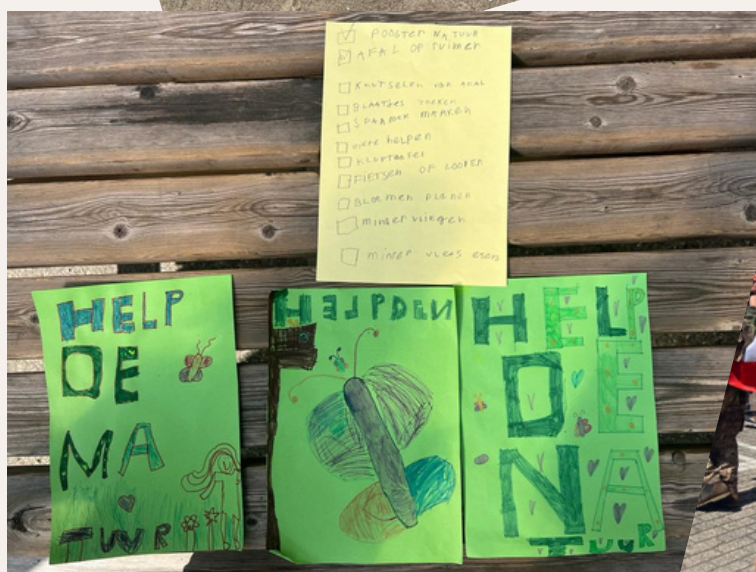 POOSTER NATUUR
AFAL OP ruimen
KNUTSELEN van afal
BLAATJES
SPAAREN MAAKEN
helpen
FIETSEN OF LOOPEN
BLOEMEN PLANEN
minder vliegen
minder vlees eten
HELP
DE
MA
TUUR
HELP DEN
HELP
DE
NA
TUUR